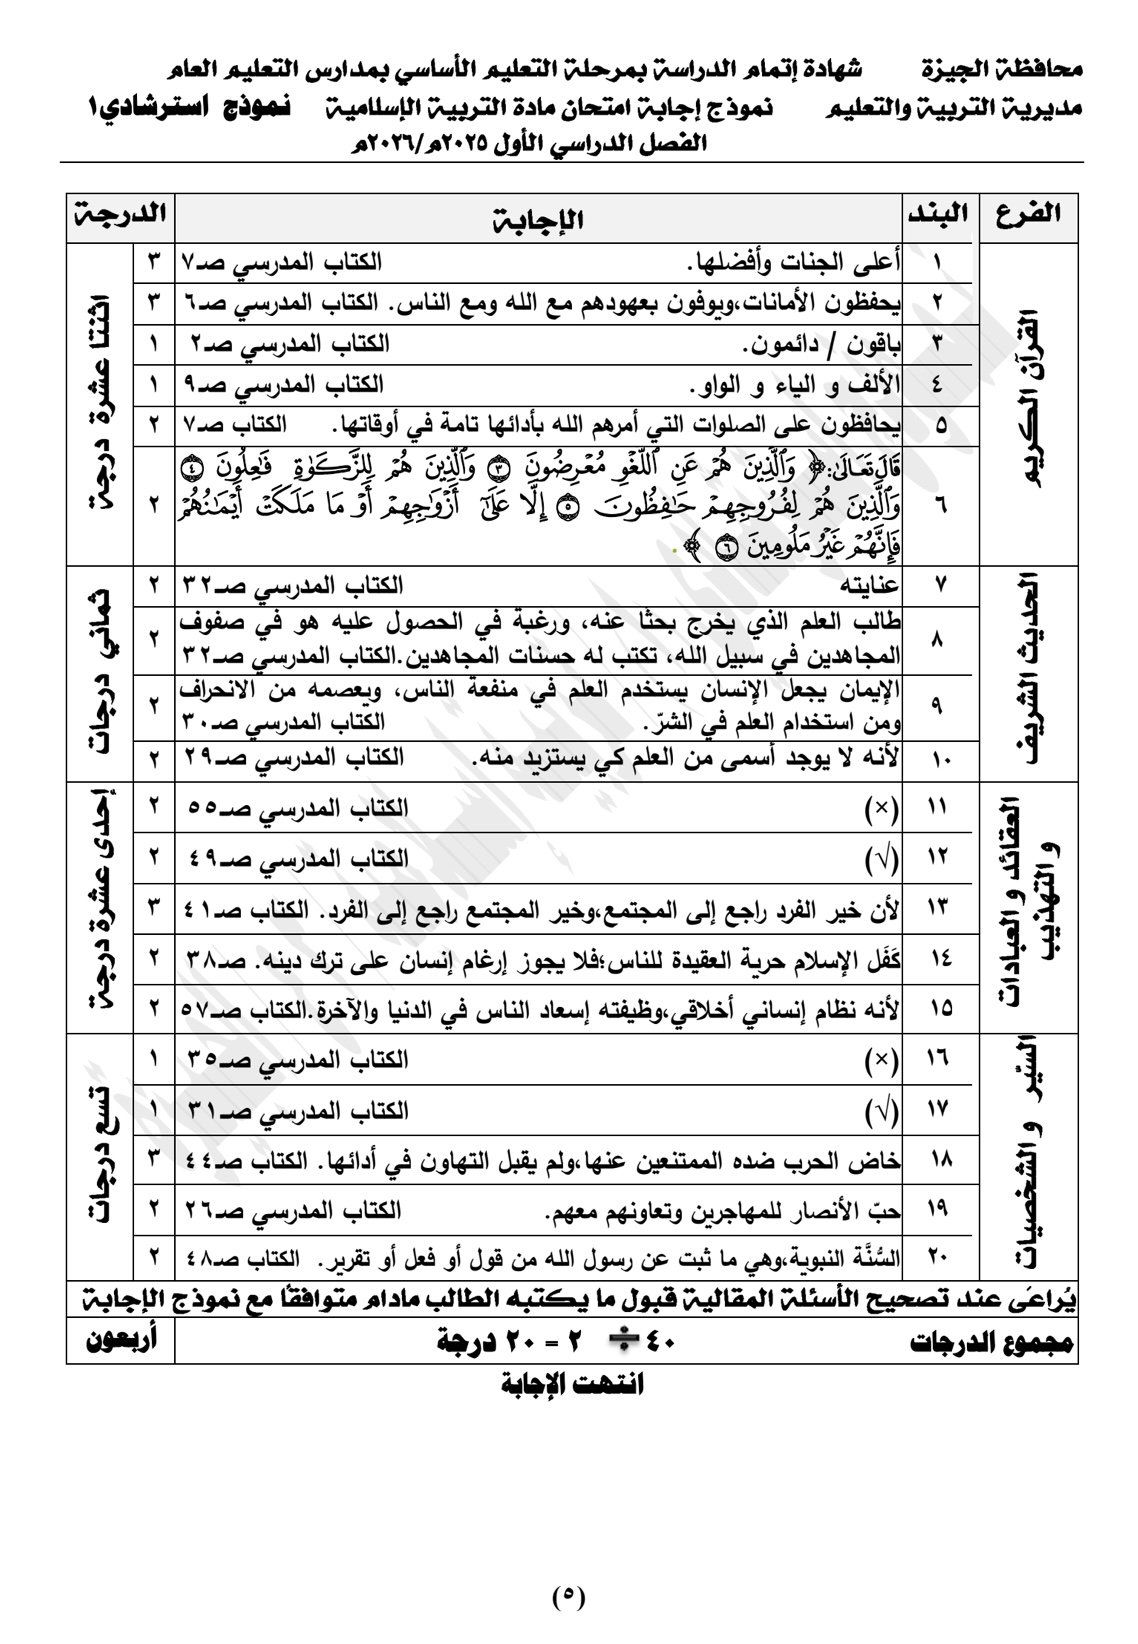 محافظة الجيزة شهادة إتمام الدراسة بمرحلة التعليم الأساسي بمدارس التعليم العام
مديرية التربية والتعليم نموذج إجابة امتحان مادة التربية الإسلامية نموذج استرشادي١
الفصل الدراسي الأول ٢٠٢٥م/٢٠٢٦م
الفرع البند الإجابة الدرجة
القرآن الكريم
اثنتا عشرة درجة
١ أعلى الجنات وأفضلها. الكتاب المدرسي صـ٧ ٣
٢ يحفظون الأمانات،ويوفون بعهودهم مع الله ومع الناس. الكتاب المدرسي صـ٦ ٣
٣ باقون / دائمون. الكتاب المدرسي صـ٢ ١
٤ الألف و الياء و الواو. الكتاب المدرسي صـ٩ ١
٥ يحافظون على الصلوات التي أمرهم الله بأدائها تامة في أوقاتها. الكتاب صـ٧ ٢
قَالَ تَعَالَىٰ: ﴿ وَٱلَّذِينَ هُمْ عَنِ ٱللَّغْوِ مُعْرِضُونَ ٣ وَٱلَّذِينَ هُمْ لِلزَّكَوٰةِ فَٰعِلُونَ ٤
٦ وَٱلَّذِينَ هُمْ لِفُرُوجِهِمْ حَٰفِظُونَ ٥ إِلَّا عَلَىٰٓ أَزْوَٰجِهِمْ أَوْ مَا مَلَكَتْ أَيْمَٰنُهُمْ ٢
فَإِنَّهُمْ غَيْرُ مَلُومِينَ ٦ ﴾ .
الحديث الشريف
ثماني درجات
٧ عنايته الكتاب المدرسي صـ٣٢ ٢
٨ طالب العلم الذي يخرج بحثًا عنه، ورغبة في الحصول عليه هو في صفوف ٢
المجاهدين في سبيل الله، تكتب له حسنات المجاهدين.الكتاب المدرسي صـ٣٢
٩ الإيمان يجعل الإنسان يستخدم العلم في منفعة الناس، ويعصمه من الانحراف ٢
ومن استخدام العلم في الشرّ. الكتاب المدرسي صـ٣٠
١٠ لأنه لا يوجد أسمى من العلم كي يستزيد منه. الكتاب المدرسي صـ٢٩ ٢
العقائد و العبادات
و التهذيب
إحدى عشرة درجة
١١ (×) الكتاب المدرسي صـ٥٥ ٢
١٢ (√) الكتاب المدرسي صـ٤٩ ٢
١٣ لأن خير الفرد راجع إلى المجتمع،وخير المجتمع راجع إلى الفرد. الكتاب صـ٤١ ٣
١٤ كَفَل الإسلام حرية العقيدة للناس؛فلا يجوز إرغام إنسان على ترك دينه. صـ٣٨ ٢
١٥ لأنه نظام إنساني أخلاقي،وظيفته إسعاد الناس في الدنيا والآخرة.الكتاب صـ٥٧ ٢
السّير و الشخصيات
تسع درجات
١٦ (×) الكتاب المدرسي صـ٣٥ ١
١٧ (√) الكتاب المدرسي صـ٣١ ١
١٨ خاض الحرب ضده الممتنعين عنها،ولم يقبل التهاون في أدائها. الكتاب صـ٤٤ ٣
١٩ حبّ الأنصار للمهاجرين وتعاونهم معهم. الكتاب المدرسي صـ٢٦ ٢
٢٠ السُّنَّة النبوية،وهي ما ثبت عن رسول الله من قول أو فعل أو تقرير. الكتاب صـ٤٨ ٢
يُراعَى عند تصحيح الأسئلة المقالية قبول ما يكتبه الطالب مادام متوافقًا مع نموذج الإجابة
مجموع الدرجات ٤٠ ÷ ٢ = ٢٠ درجة أربعون
انتهت الإجابة
(٥)